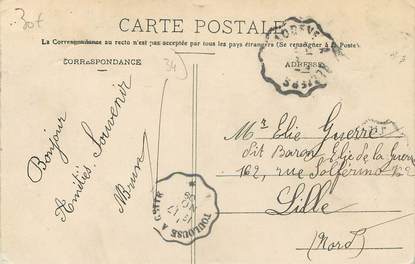 30f
CARTE POSTALE
La Correspondance au recto n'est pas acceptée par tous les pays étrangers (Se renseigner à la Poste)
CORRESPONDANCE
ADRESSE
34
Bonjour
Amitiés. Souvenir
Brun
Mr Elie Guerre
dit Baron Elie de la Guerre
162, rue Solferino 162
Lille
(Nord)
TOULOUSE A CETTE